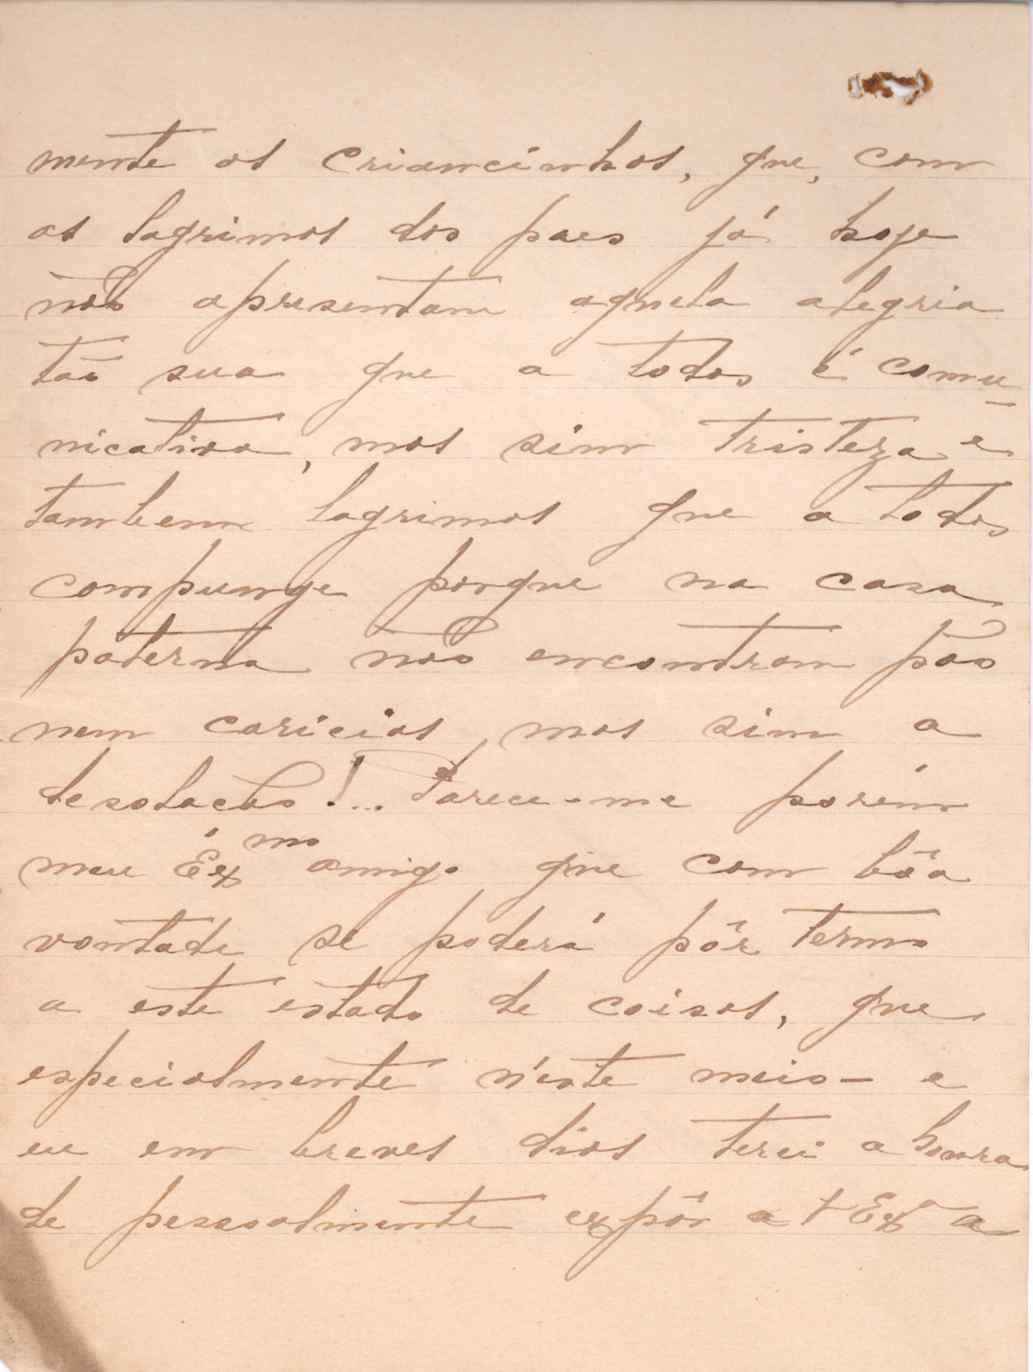 mente as criancinhas, que, com
as lagrimas dos paes já hoje
não apresentam aquela alegria
tão sua que a todos é comu-
nicativa, mas sim tristeza e
tambem lagrimas que a todos
compunge porque na casa
paterna não encontram pão
nem caricias, mas sim a
desolação!.. Parece-me porém
meu Éxmo amigo que com bôa
vontade se poderá pôr termo
a este estado de coisas, que
especialmente n'este meio - e
eu em breves dias terei a honra
de pessoalmente expôr a V Exª a